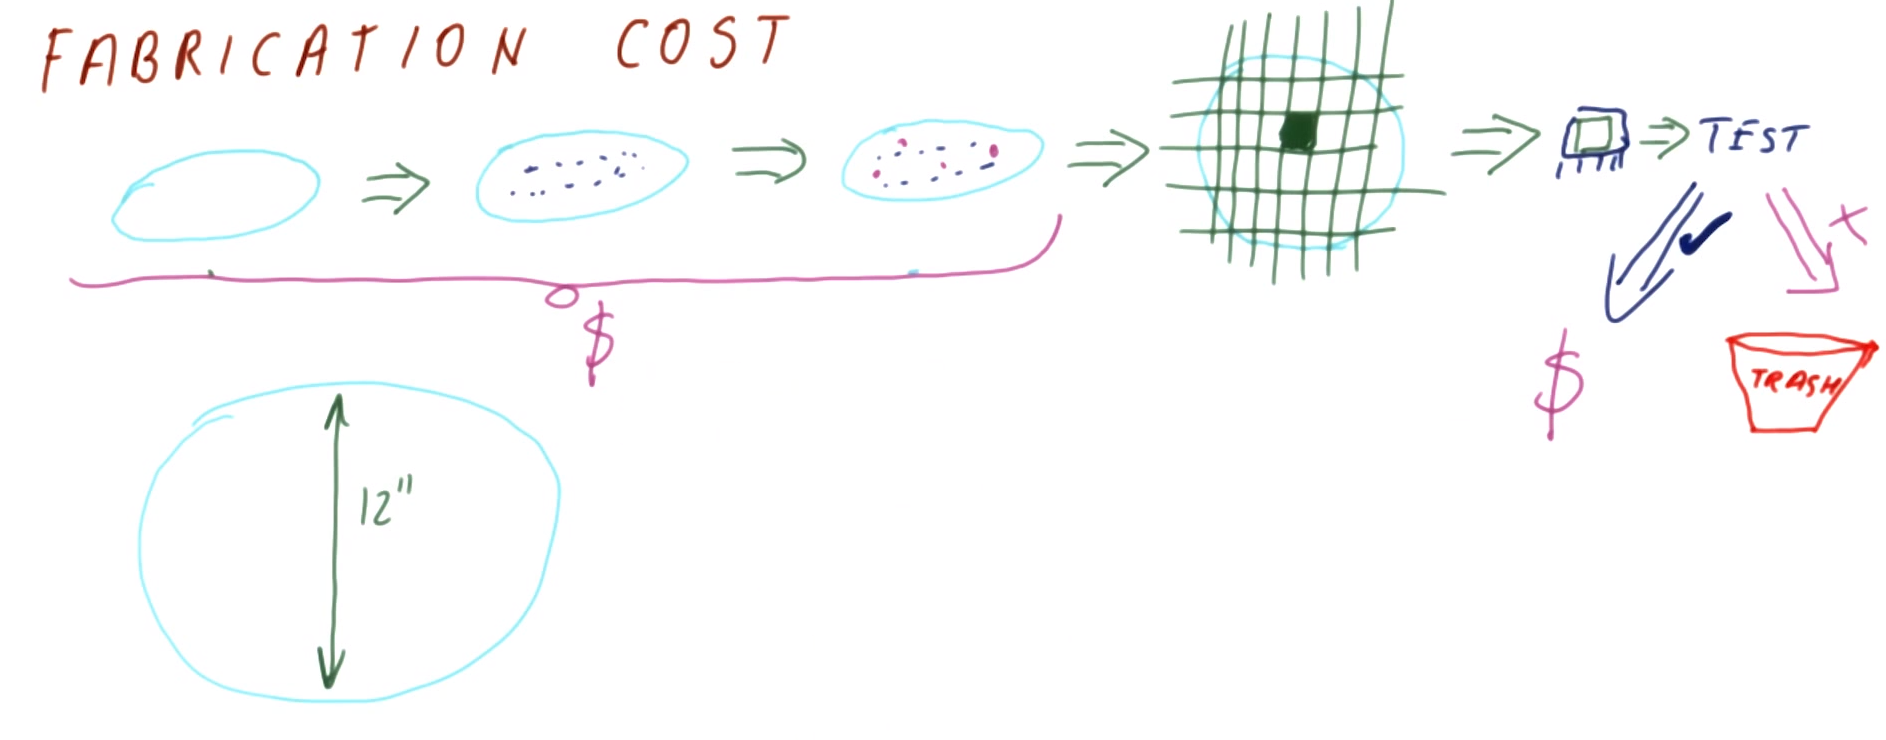 FABRICATION COST
TEST
$
$
TRASH
12"